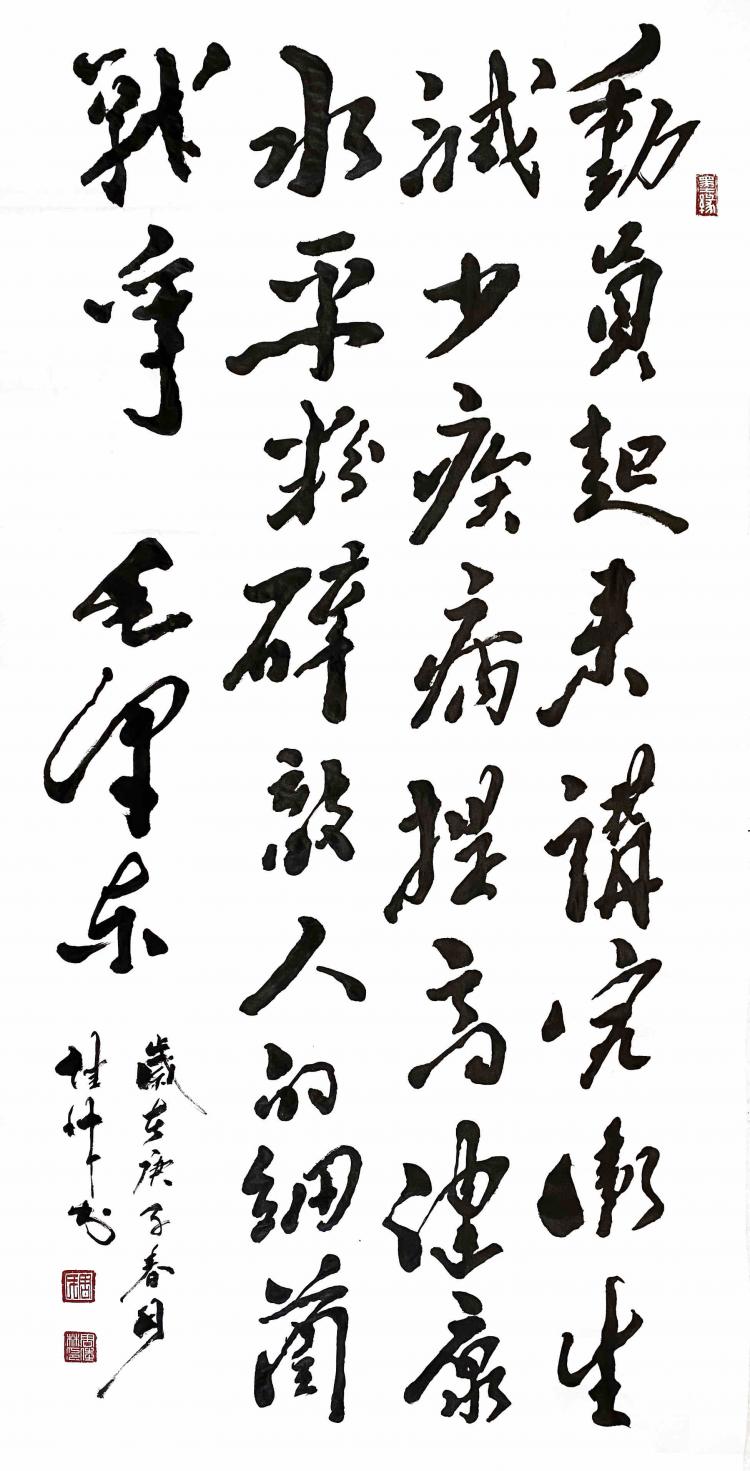 墨缘
動員起来講究衛生
減少疾病提高健康
水平粉碎敵人的細菌
戰争 毛澤东
歲在庚子春月
书